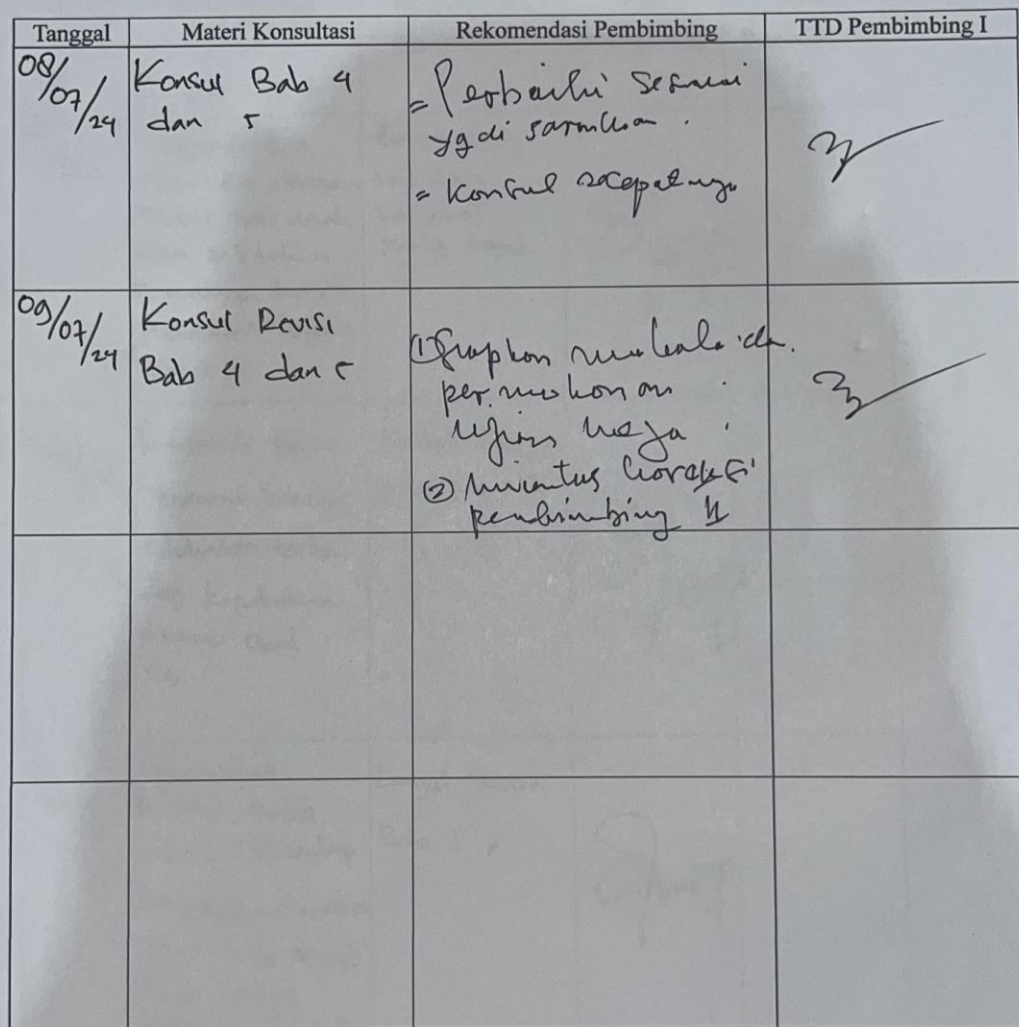 Tanggal Materi Konsultasi Rekomendasi Pembimbing TTD Pembimbing I
08/07/24 Konsul Bab 4
dan 5
= Perbaiki sesuai
yg di sarankan.
= Konsul secepatnya
09/07/24 Konsul Revisi
Bab 4 dan 5
(1) Siapkan
per.mohonan
ujian meja
(2) koreksi
pembimbing II